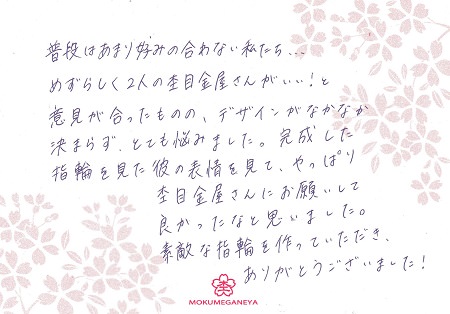 普段はあまり好みの合わない私たち...
めずらしく2人の杢目金屋さんがいい!と
意見が合ったものの、デザインがなかなか
決まらず、とても悩みました。完成した
指輪を見た彼の表情を見て、やっぱり
杢目金屋さんにお願いして
良かったなと思いました。
素敵な指輪を作っていただき、
ありがとうございました!
杢
MOKUMEGANEYA